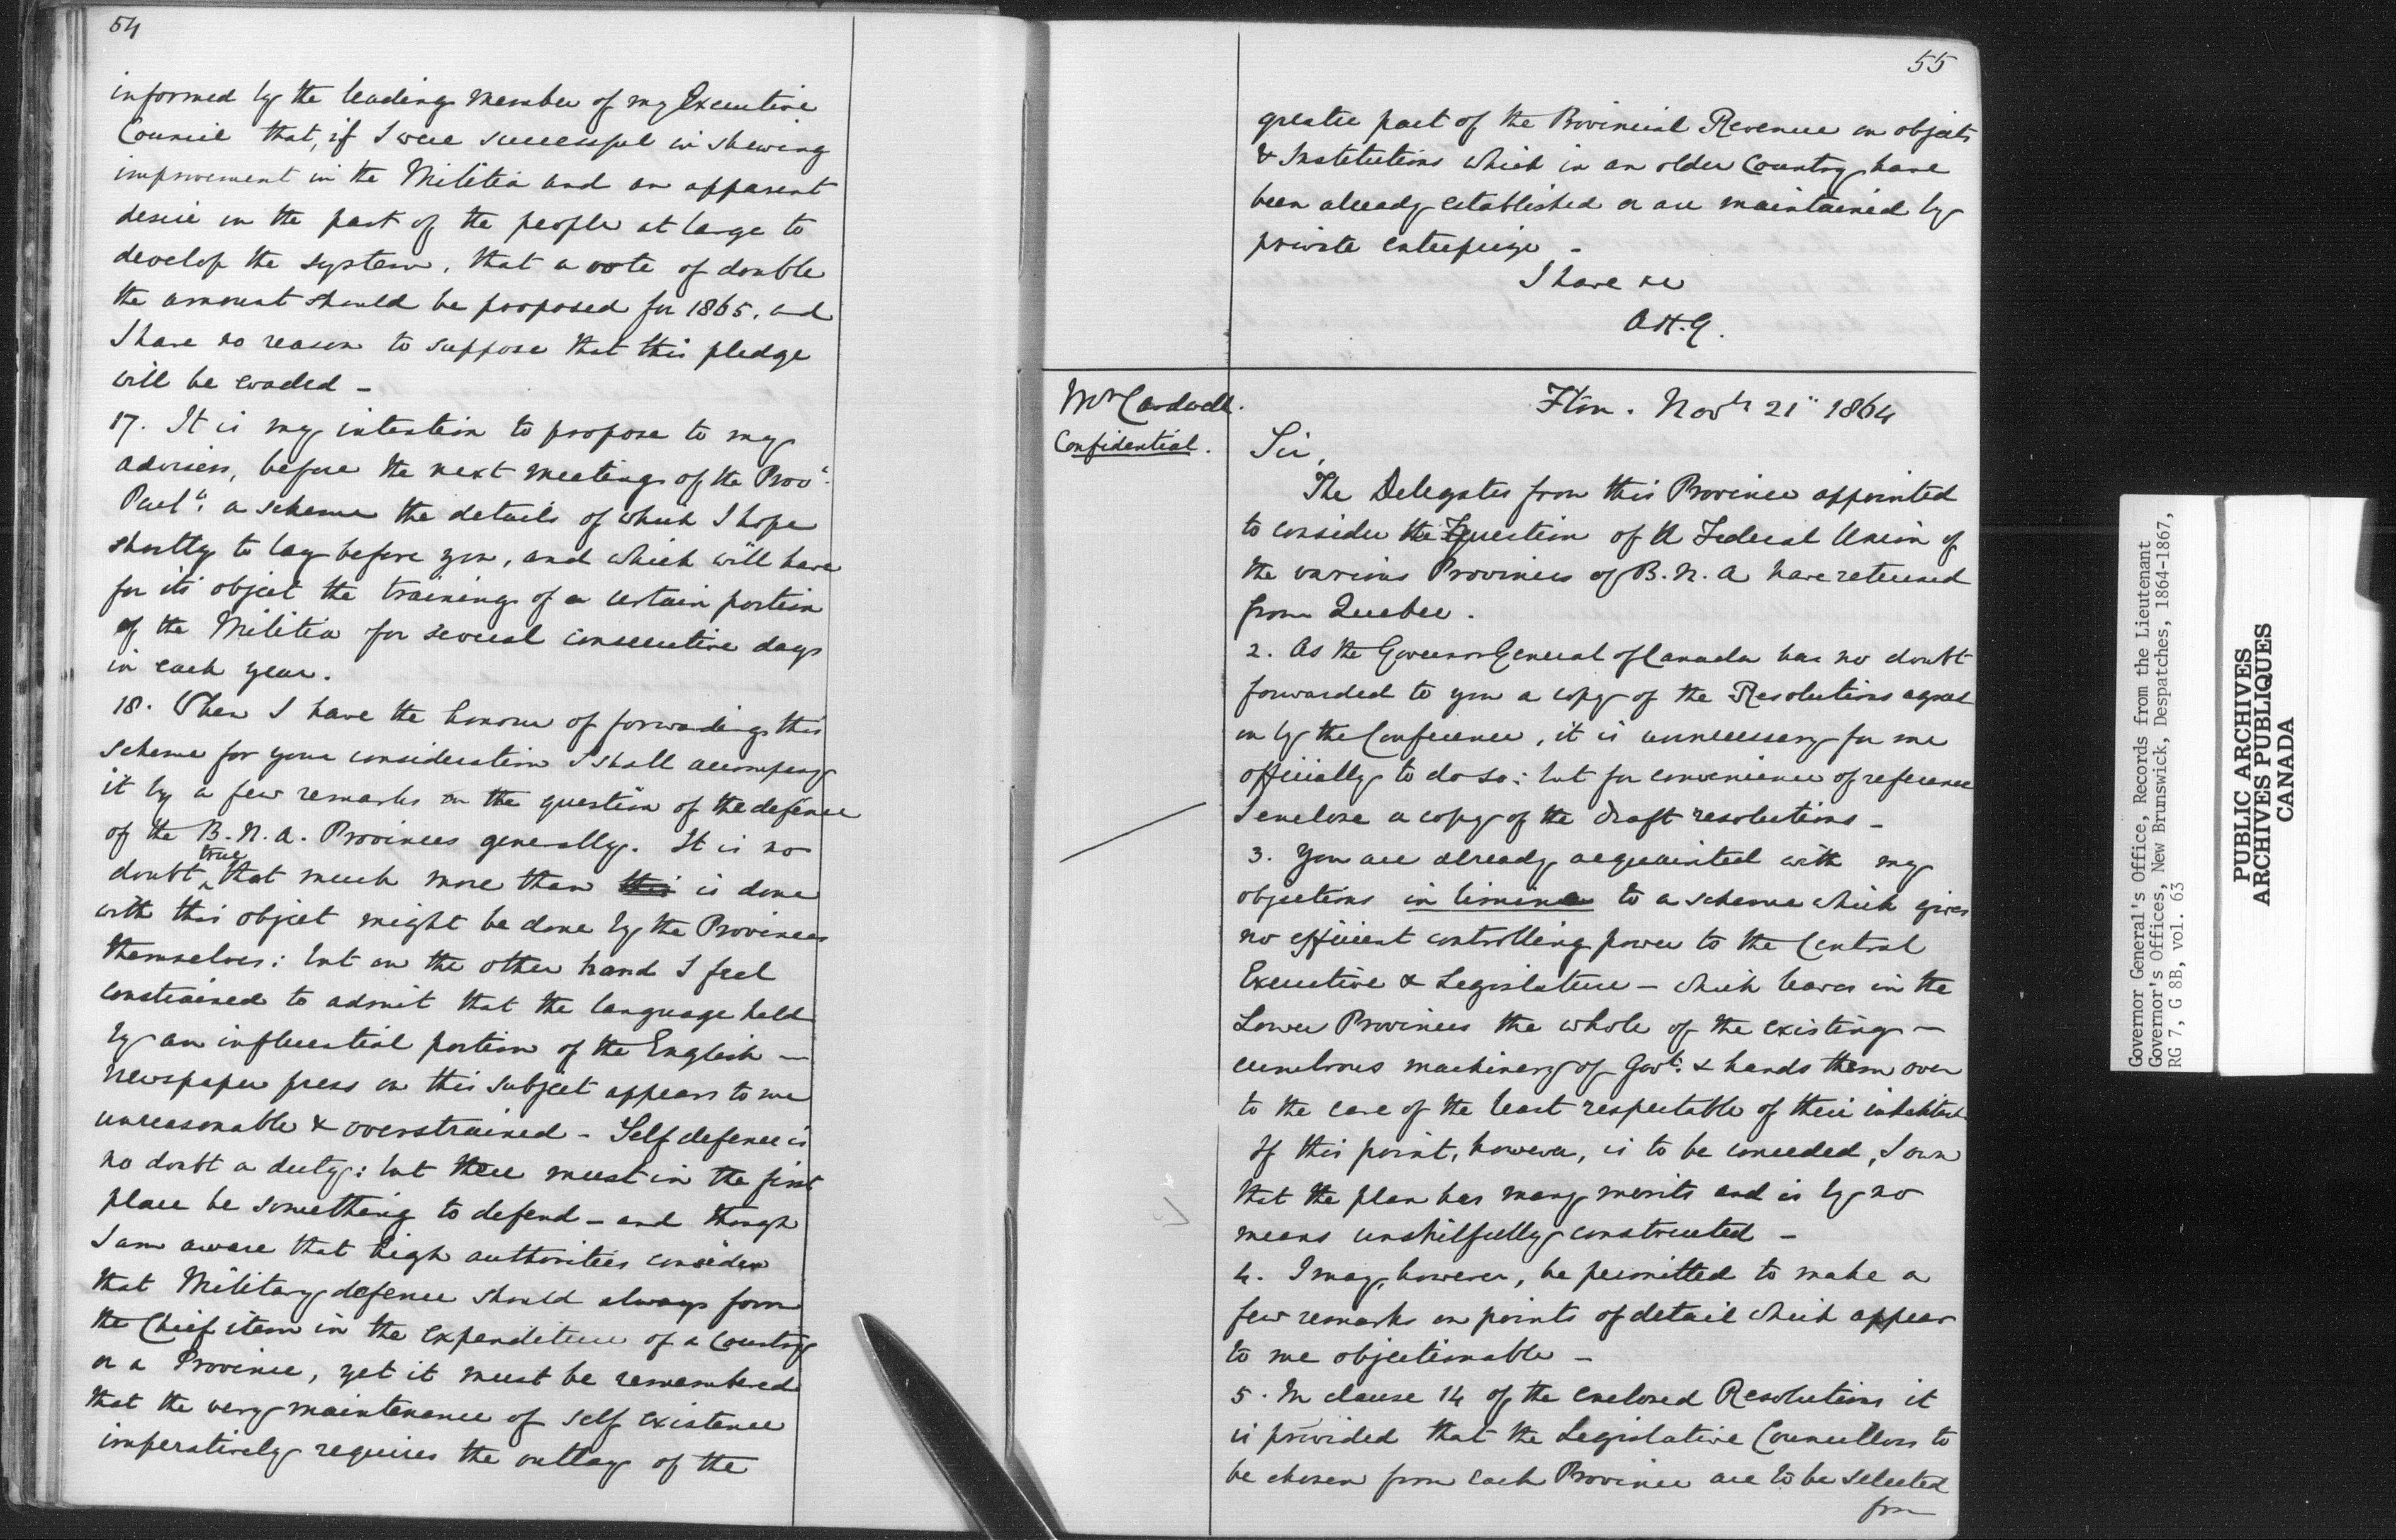 54
informed by the leading member of my Executive
Council that, if I were successful in shewing
improvement in the Militia and an apparent
desire on the part of the people at large to
develop the system, that a vote of double
the amount should be proposed for 1865, and
I have no reason to suppose that this pledge
will be evaded –
17. It is my intention to propose to my
advisers, before the next meeting of the Prov:
Parlt: a scheme the details of which I hope
shortly to lay before you, and which will have
for its object the training of a certain portion
of the Militia for several consecutive days
in each year.
18. When I have the honour of forwarding this
scheme for your consideration I shall accompany
it by a few remarks on the question of the defence
of the B.N.A. Provinces generally. It is no
doubt true that much more than this is done
with this object might be done by the Provinces
themselves: but on the other hand I feel
constrained to admit that the language held
by an influential portion of the English –
newspaper press on this subject appears to me
unreasonable & overstrained – Self defence is
no doubt a duty: but there must in the first
place be something to defend – and though
I am aware that high authorities consider
that Military defence should always form
the Chief item in the expenditure of a Country
or a Province, yet it must be remembered
that the very maintenance of self existence
imperatively requires the outlay of the
55
greater part of the Provincial Revenue on objects
& Institutions which in an older Country have
been already established or are maintained by
private enterprize –
I have &c
A.H.G.
Mr Cardwell.
Confidential.
Fton. Novr 21" 1864
Sir,
The Delegates from this Province appointed
to consider the question of a Federal Union of
the various Provinces of B.N.A have returned
from Quebec.
2. As the Governor General of Canada has no doubt
forwarded to you a copy of the Resolutions agreed
on by the Conference, it is unnecessary for me
officially to do so: but for convenience of reference
I enclose a copy of the draft resolutions –
3. You are already acquainted with my
objections in limine to a scheme which gives
no efficient controlling power to the Central
Executive & Legislature – which leaves in the
Lower Provinces the whole of the existing –
cumbrous machinery of Govt: & hands them over
to the care of the least respectable of their inhabitants
If this point, however, is to be conceded, I own
that the plan has many merits and is by no
means unskilfully constructed –
4. I may, however, be permitted to make a
few remarks on points of detail which appear
to me objectionable –
5. In clause 14 of the enclosed Resolutions it
is provided that the Legislative Councillors to
be chosen from each Province are to be selected
from
Governor General's Office, Records from the Lieutenant
Governor's Offices, New Brunswick, Despatches, 1864-1867,
RG 7, G 8B, vol. 63
PUBLIC ARCHIVES
ARCHIVES PUBLIQUES
CANADA